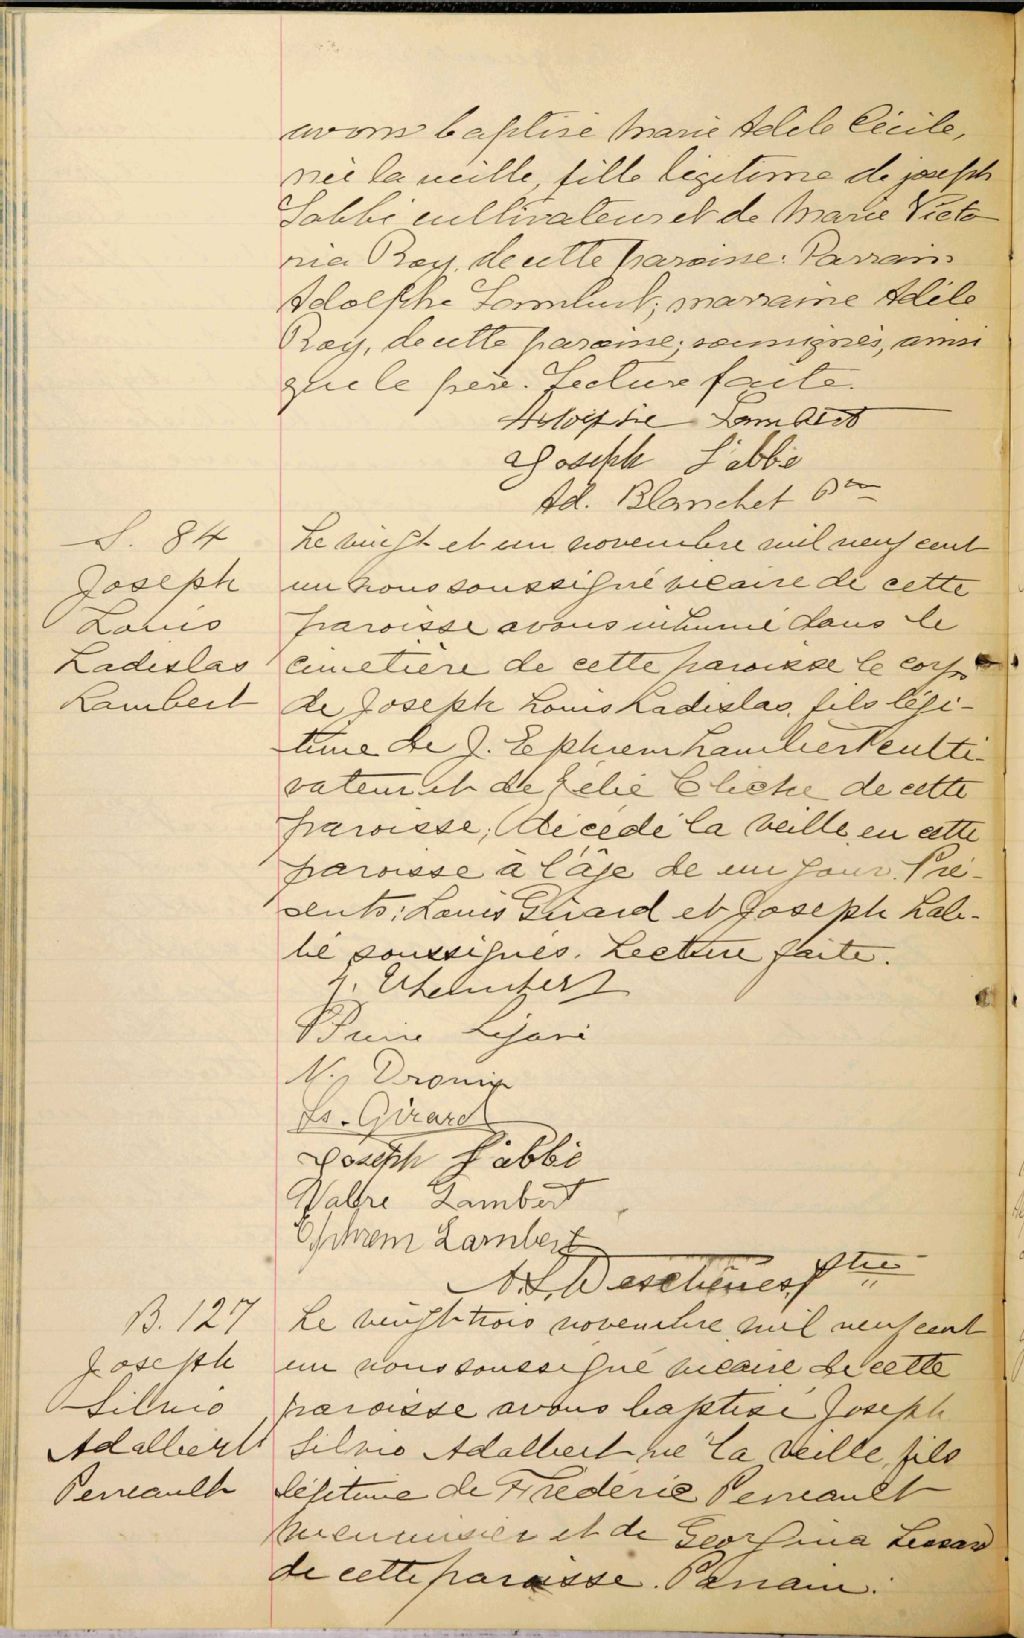 avons baptisé Marie Adèle Cécile,
née la veille, fille légitime de joseph
Labbé cultivateur et de Marie Victo
ria Roy, de cette paroisse. Parrain
Adolphe Lambert; marraine Adèle
Roy, de cette paroisse; soussignés, ainsi
que le père. Lecture faite.
Adolphe Lambert
Joseph L'abbé
Ad. Blanchet Ptre
S. 84
Joseph
Louis
Ladislas
Lambert
Le vingt et un novembre mil neuf cent
un nous soussigné vicaire de cette
paroisse avons inhumé dans le
cimetière de cette paroisse le corps
de Joseph Louis Ladislas, fils légi-
time de J. Ephrem Lambert culti-
vateur et de Célie Cliche de cette
paroisse, décédé la veille en cette
paroisse à l'âge de un jour. Pré-
sents: Louis Girard et Joseph Lab-
bé soussignés. Lecture faite.
J. E Lambert
N. Drouin
Ls. Girard
Joseph L'abbé
Valère Lambert
Ephrem Lambert
A. L. Deschênes, Ptre
B. 127
Joseph
Silvio
Adalbert
Perreault
Le vingt trois novembre mil neuf cent
un nous soussigné vicaire de cette
paroisse avons baptisé Joseph
Silvio Adalbert né la veille, fils
légitime de Frédéric Perreault
menuisier et de Georgina Lessard
de cette paroisse. Parrain: